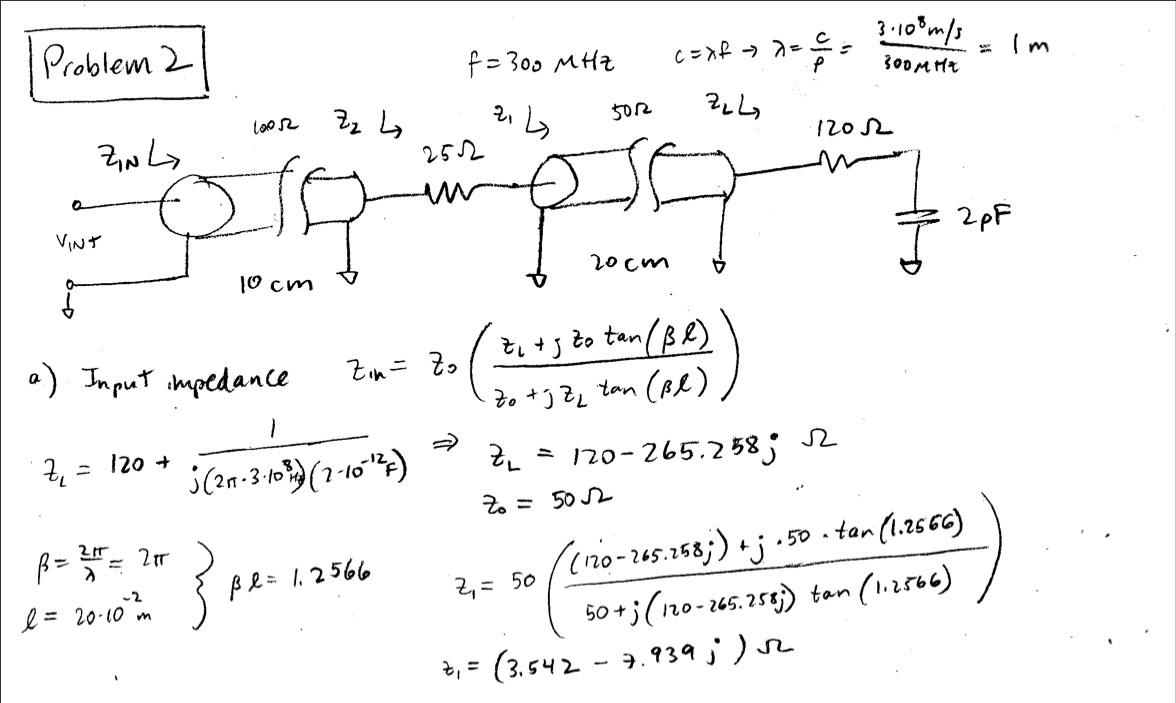 Problem 2
f = 300 MHz c = λf → λ = c/f = 3·10⁸ m/s / 300 MHz = 1 m
Z_IN ↳ 100Ω Z₂ ↳ 25Ω Z₁ ↳ 50Ω Z_L ↳ 120Ω
V_INT
2pF
10 cm 20 cm
a) Input impedance Z_in = Z₀ ( (Z_L + j Z₀ tan(βl)) / (Z₀ + j Z_L tan(βl)) )
Z_L = 120 + 1 / (j(2π·3·10⁸ Hz)(2·10⁻¹² F)) ⇒ Z_L = 120 - 265.258j Ω
Z₀ = 50 Ω
β = 2π/λ = 2π
l = 20·10⁻² m } βl = 1.2566
Z₁ = 50 ( ((120 - 265.258j) + j·50·tan(1.2566)) / (50 + j(120 - 265.258j) tan(1.2566)) )
Z₁ = (3.542 - 7.939j) Ω